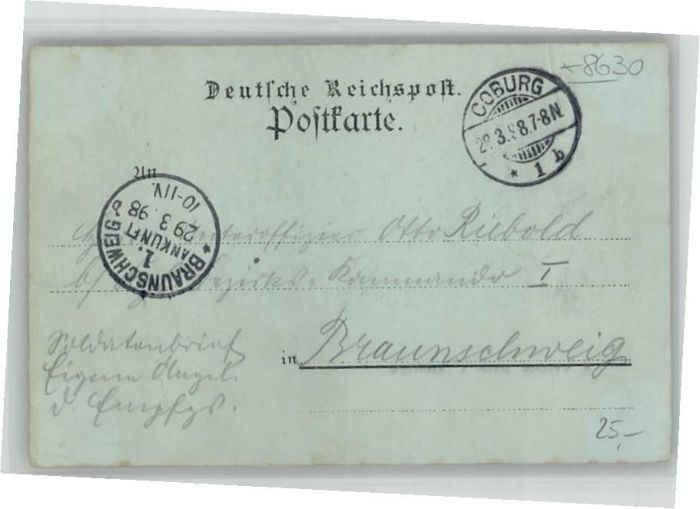 8630
Deutsche Reichspost.
Postkarte.
COBURG
3.98.7-8N.
* 1 b
An
BRAUNSCHWEIG
1.
ANKUNFT
29 3 98
10-11V.
Unteroffizier Otto Riebold
Bezirks-Kommando I
in Braunschweig
Soldatenbrief
Eigene Angel.
d. Empfgs.
25,-